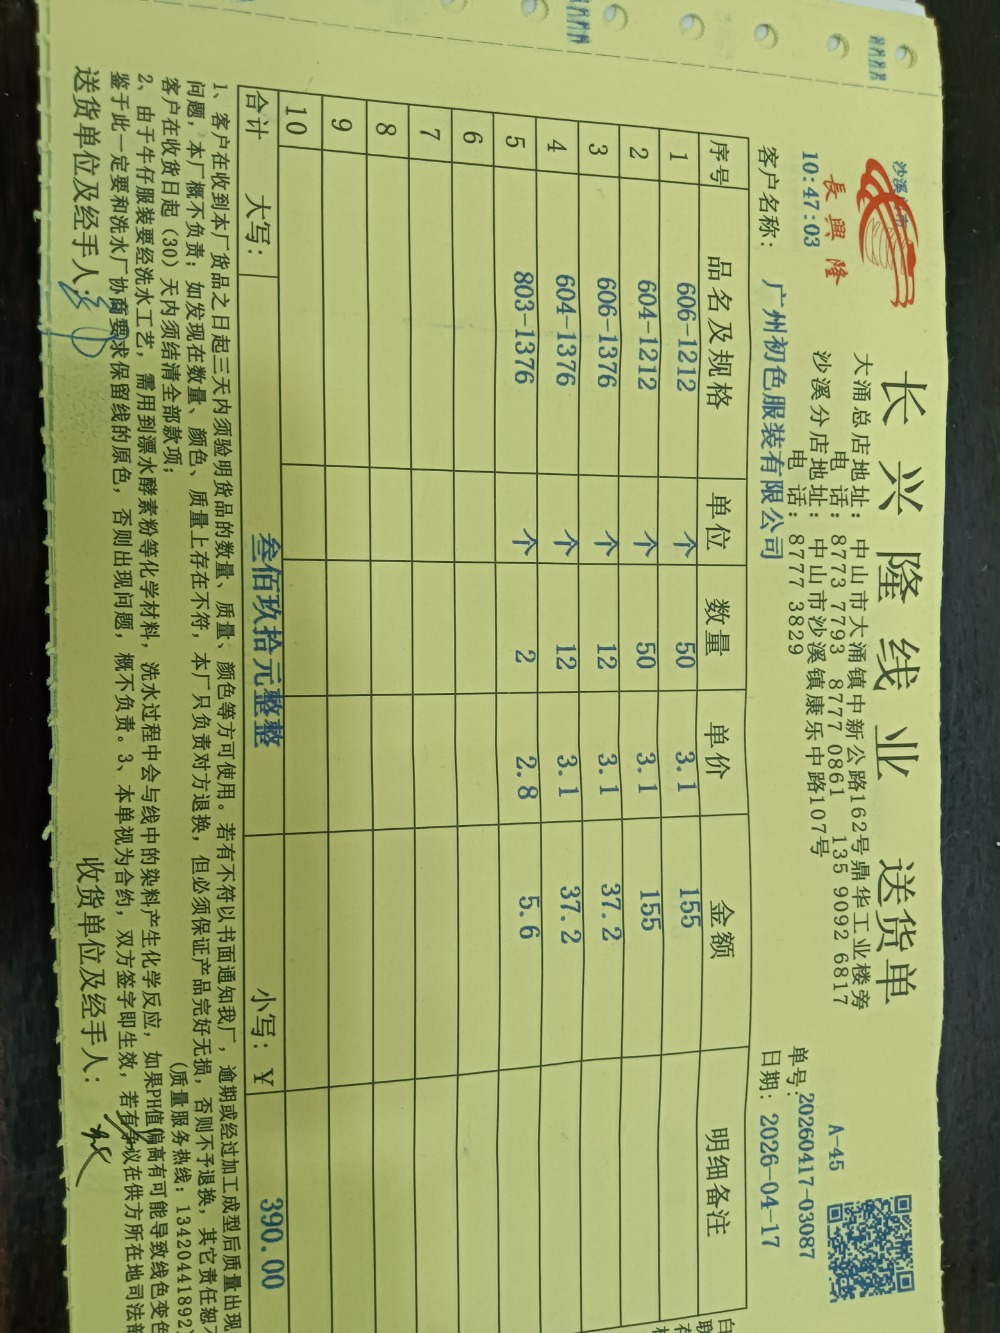 長興隆
长兴隆线业 送货单
大涌总店地址：中山市大涌镇中新公路162号鼎华工业楼旁
电 话：8773 7793 8777 0861 135 9092 6817
沙溪分店地址：中山市沙溪镇康乐中路107号
电 话：8777 3829
A-45
10:47:03
单号：20260417-03087
客户名称：广州初色服装有限公司
日期：2026-04-17
序号 品名及规格 单位 数量 单价 金额 明细备注
1 606-1212 个 50 3.1 155
2 604-1212 个 50 3.1 155
3 606-1376 个 12 3.1 37.2
4 604-1376 个 12 3.1 37.2
5 803-1376 个 2 2.8 5.6
6
7
8
9
10
合计 大写：叁佰玖拾元整整 小写：￥ 390.00
1、客户在收到本厂货品之日起三天内须验明货品的数量、质量、颜色等方可使用。若有不符以书面通知我厂，逾期或经过加工成型后质量出现
问题，本厂概不负责；如发现在数量、颜色、质量上存在不符，本厂只负责对方退换，但必须保证产品完好无损，否则不予退换，其它责任恕
客户在收货日起（30）天内须结清全部款项； （质量服务热线：13420441892）
2、由于牛仔服装要经洗水工艺，需用到漂水酵素粉等化学材料，洗水过程中会与线中的染料产生化学反应，如果PH值偏高有可能导致线色变色
鉴于此一定要和洗水厂协商要求保留线的原色，否则出现问题，概不负责。3、本单视为合约，双方签字即生效，若有争议在供方所在地司法部
送货单位及经手人： 收货单位及经手人：